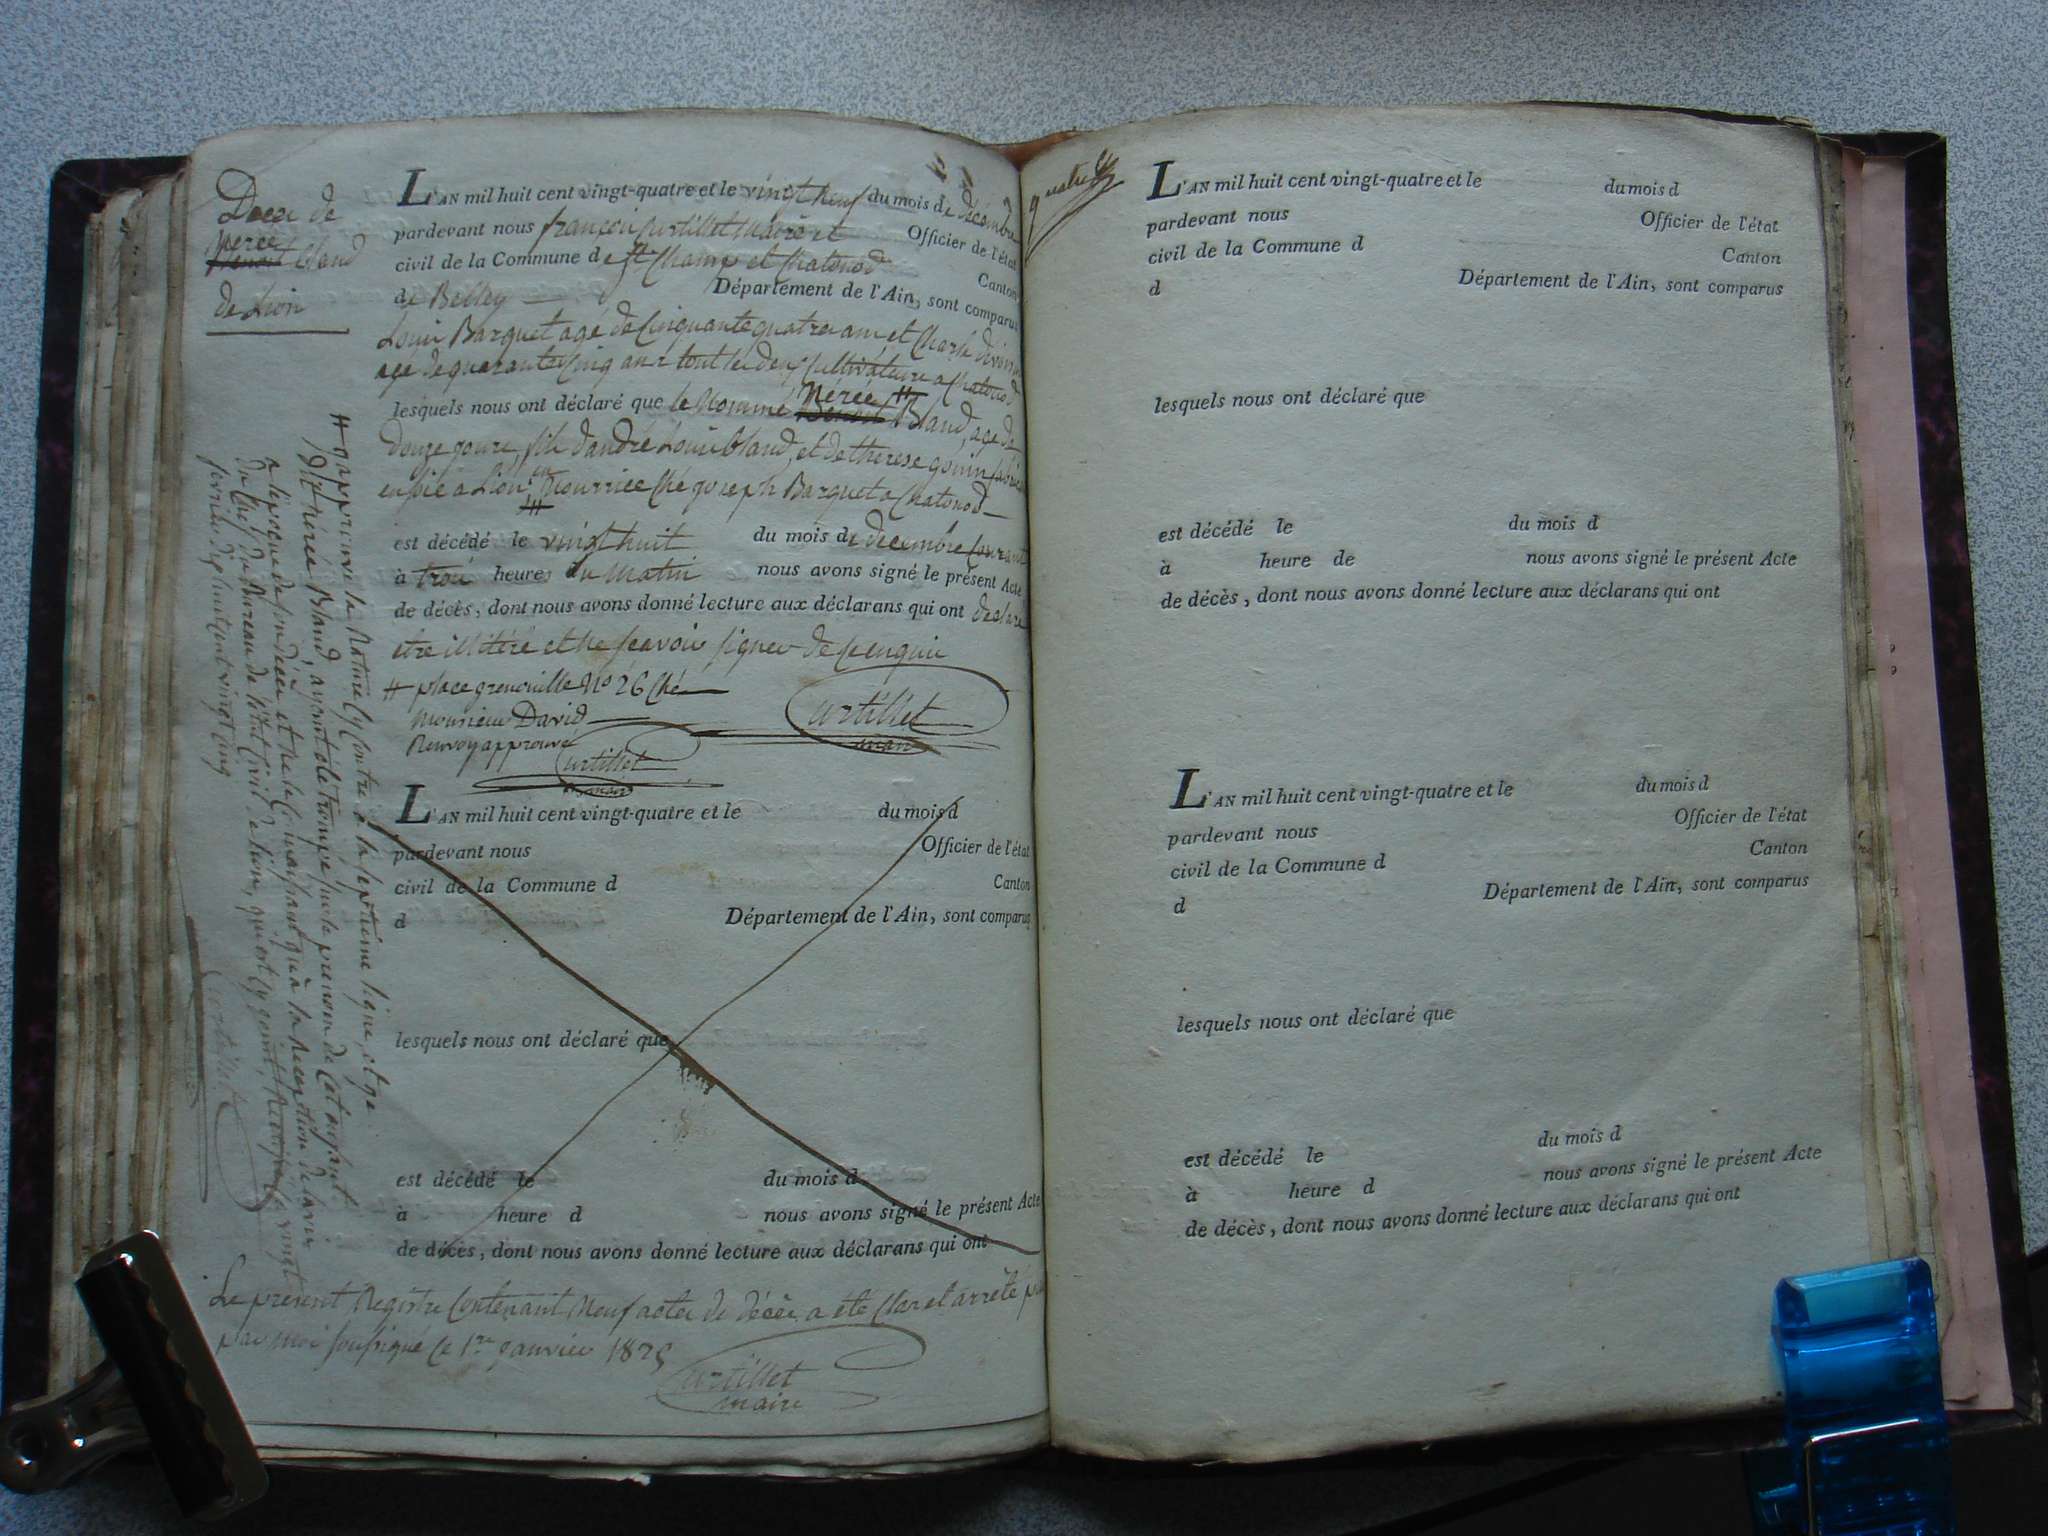 Décès de
Nérée
Benoit Bland
de Lion
L'AN mil huit cent vingt-quatre et le vingt neuf du mois de décembre
pardevant nous françois Curtillet Maire et Officier de l'état
civil de la Commune de St Champ et Chatonod Canton
de Belley Département de l'Ain, sont comparus
Louis Barquet agé de Cinquante quatre ans et Charle
agé de quarante Cinq ans tout les deux Cultivateurs a Chatonod
lesquels nous ont déclaré que le Nommé Nérée # Benoit Bland, age de
Douze goure, fils d'andré Louis bland, et de therese gouin
a Lion en Nourrice Ché goseph Barquet a Chatonod
#
est décédé le vingt huit du mois de decembre Courant
à troi heures du Matin nous avons signé le présent Acte
de décès, dont nous avons donné lecture aux déclarans qui ont declaré
etre illitéré et ne scavoir signer de ce enquis
# place grenouille No 26 Ché
Monsieur David
Renvoy approuvé
Curtillet
maire
Curtillet
maire
# gapprouve la Rature Cy Contre a la septieme ligne, et ge
Dit Nérée Bland, ayant été trompé sur le prenom de Cet enfant
a l'époque de son décès et ne le Connaissant qu'à la Reception de l'avis
du Chef du Bureau de l'état Civil de Lion, qui est Cy goint, le vingt
février dix huit cent vingt cinq
Curtillet
L'AN mil huit cent vingt-quatre et le du mois d
pardevant nous Officier de l'état
civil de la Commune d Canton
d Département de l'Ain, sont comparus
lesquels nous ont déclaré que
est décédé le du mois d
à heure d nous avons signé le présent Acte
de décès, dont nous avons donné lecture aux déclarans qui ont
Le présent Registre Contenant Neuf actes de décès a été Clos et arrêté
par moi soussigné le 1er ganvier 1825
Curtillet
maire
quatre
L'AN mil huit cent vingt-quatre et le du mois d
pardevant nous Officier de l'état
civil de la Commune d Canton
d Département de l'Ain, sont comparus
lesquels nous ont déclaré que
est décédé le du mois d
à heure de nous avons signé le présent Acte
de décès, dont nous avons donné lecture aux déclarans qui ont
L'AN mil huit cent vingt-quatre et le du mois d
pardevant nous Officier de l'état
civil de la Commune d Canton
d Département de l'Ain, sont comparus
lesquels nous ont déclaré que
est décédé le du mois d
à heure d nous avons signé le présent Acte
de décès, dont nous avons donné lecture aux déclarans qui ont